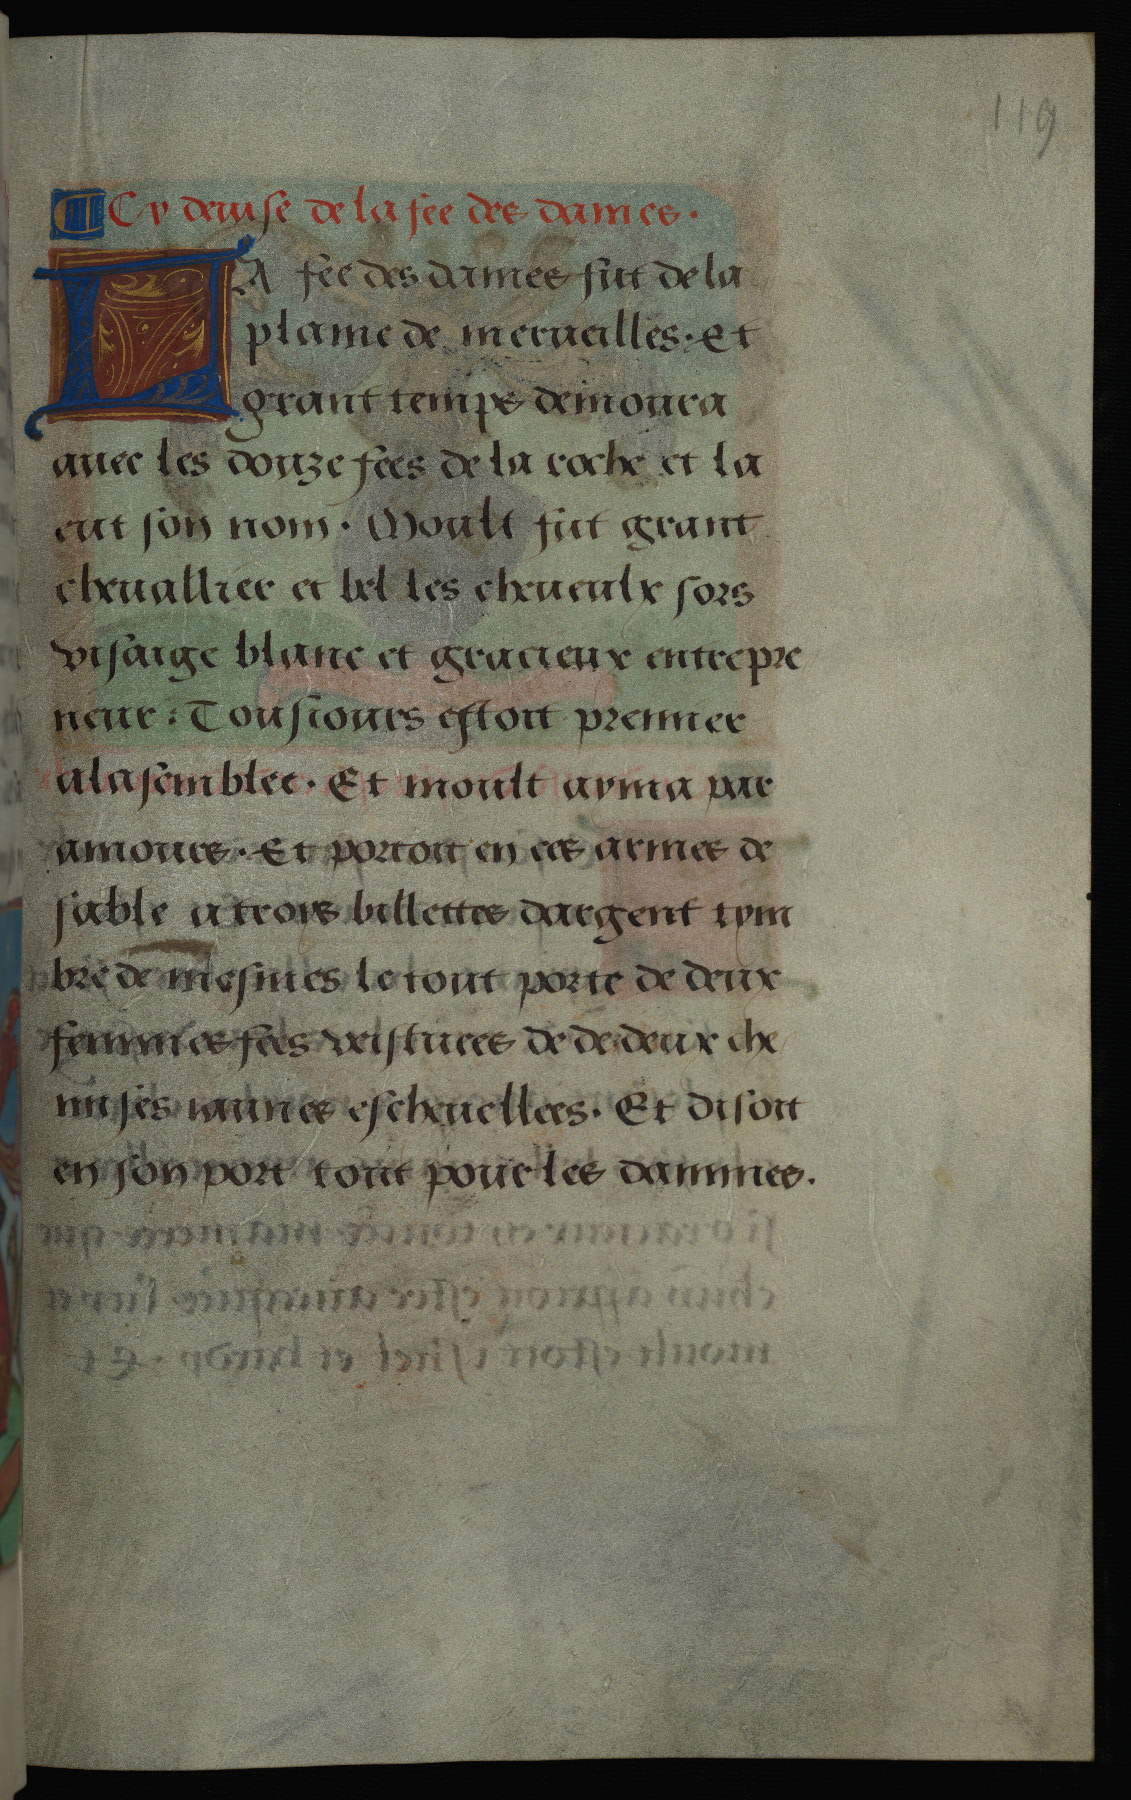 119
Cy deuise de la fee des dames.
LA fee des dames fut de la
plaine de merueilles. Et
grant temps demoura
auec les douze fees de la roche et la
eut son nom. Moult fut grant
cheuallier et bel les cheueulx sors
visaige blanc et gracieux entrepre
neur: Tousiours estoit premier
alasemblee. Et moult ayma par
amours. Et portoit en ces armes de
sable a trois billettes dargent tym
bre de mesmes le tout porte de deux
femmes fees vestures de de deux che
mises iaunes escheuellees. Et disoit
en son port tout pour les dammes.